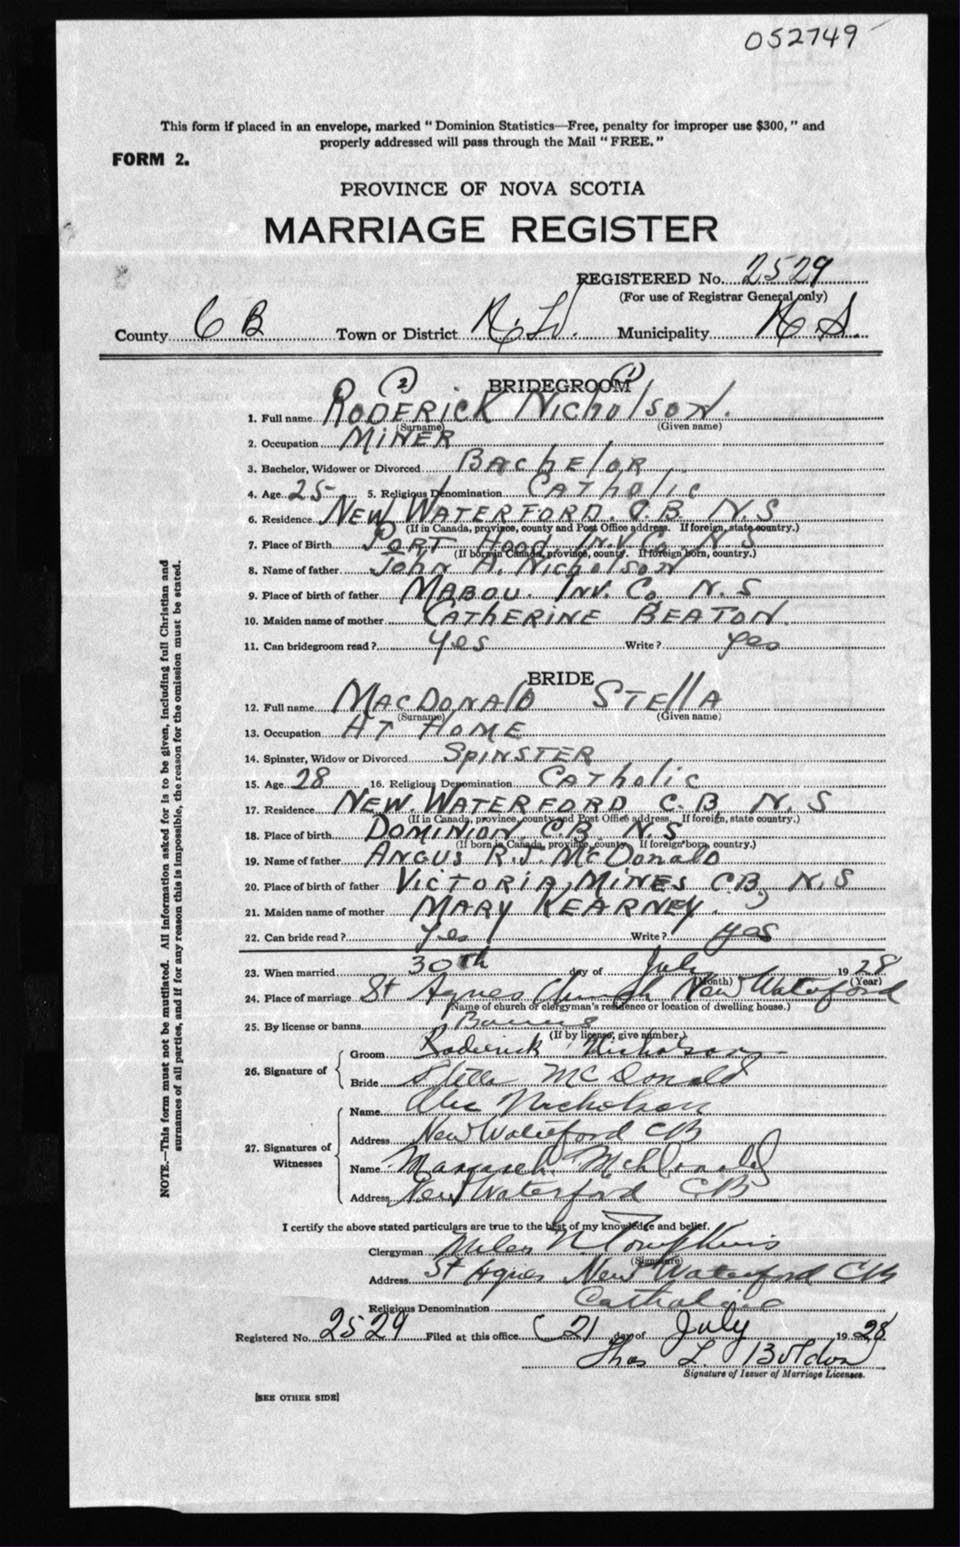 052749
This form if placed in an envelope, marked "Dominion Statistics—Free, penalty for improper use $300," and
properly addressed will pass through the Mail "FREE."
FORM 2.
PROVINCE OF NOVA SCOTIA
MARRIAGE REGISTER
REGISTERED No. 2529
(For use of Registrar General only)
County C B Town or District N. W. Municipality N S.
(2) BRIDEGROOM (1)
1. Full name RODERICK NICHOLSON.
(Surname) (Given name)
2. Occupation MINER
3. Bachelor, Widower or Divorced BACHELOR
4. Age 25 5. Religious Denomination CATHOLIC
6. Residence NEW WATERFORD. C.B. N.S
(If in Canada, province, county and Post Office address. If foreign, state country.)
7. Place of Birth PORT HOOD INV. Co N S
(If born in Canada, province, county. If foreign born, country.)
8. Name of father John A. Nicholson
9. Place of birth of father MABOU. INV. Co. N. S
10. Maiden name of mother CATHERINE BEATON.
11. Can bridegroom read? Yes Write? yes
BRIDE
12. Full name MACDONALD STELLA
(Surname) (Given name)
13. Occupation AT HOME
14. Spinster, Widow or Divorced SPINSTER
15. Age 28 16. Religious Denomination CATHOLIC
17. Residence NEW. WATERFORD C. B, N. S
(If in Canada, province, county and Post Office address. If foreign, state country.)
18. Place of birth DOMINION. C.B. N.S
(If born in Canada, province, county. If foreign born, country.)
19. Name of father ANGUS R.J. McDONALD
20. Place of birth of father VICTORIA, MINES CB, N.S
21. Maiden name of mother MARY KEARNEY.
22. Can bride read? Yes Write? yes
23. When married 30th day of July 1928
(Month) (Year)
24. Place of marriage St Agnes Church New Waterford
(Name of church or clergyman's residence or location of dwelling house.)
25. By license or banns Banns
(If by license, give number.)
26. Signature of Groom Roderick Nicholson
Bride Stella McDonald
27. Signatures of Witnesses
Name Alec Nicholson
Address New Waterford CB
Name McDonald
Address New Waterford CB
I certify the above stated particulars are true to the best of my knowledge and belief.
Clergyman Miles N. Tompkins
(Signature)
Address St Agnes New Waterford CB
Religious Denomination Catholic
Registered No. 2529 Filed at this office 21 day of July 1928
Thos L. Boldon
Signature of Issuer of Marriage Licenses.
[SEE OTHER SIDE]
NOTE.—This form must not be mutilated. All information asked for is to be given, including full Christian and
surnames of all parties, and if for any reason this is impossible, the reason for the omission must be stated.